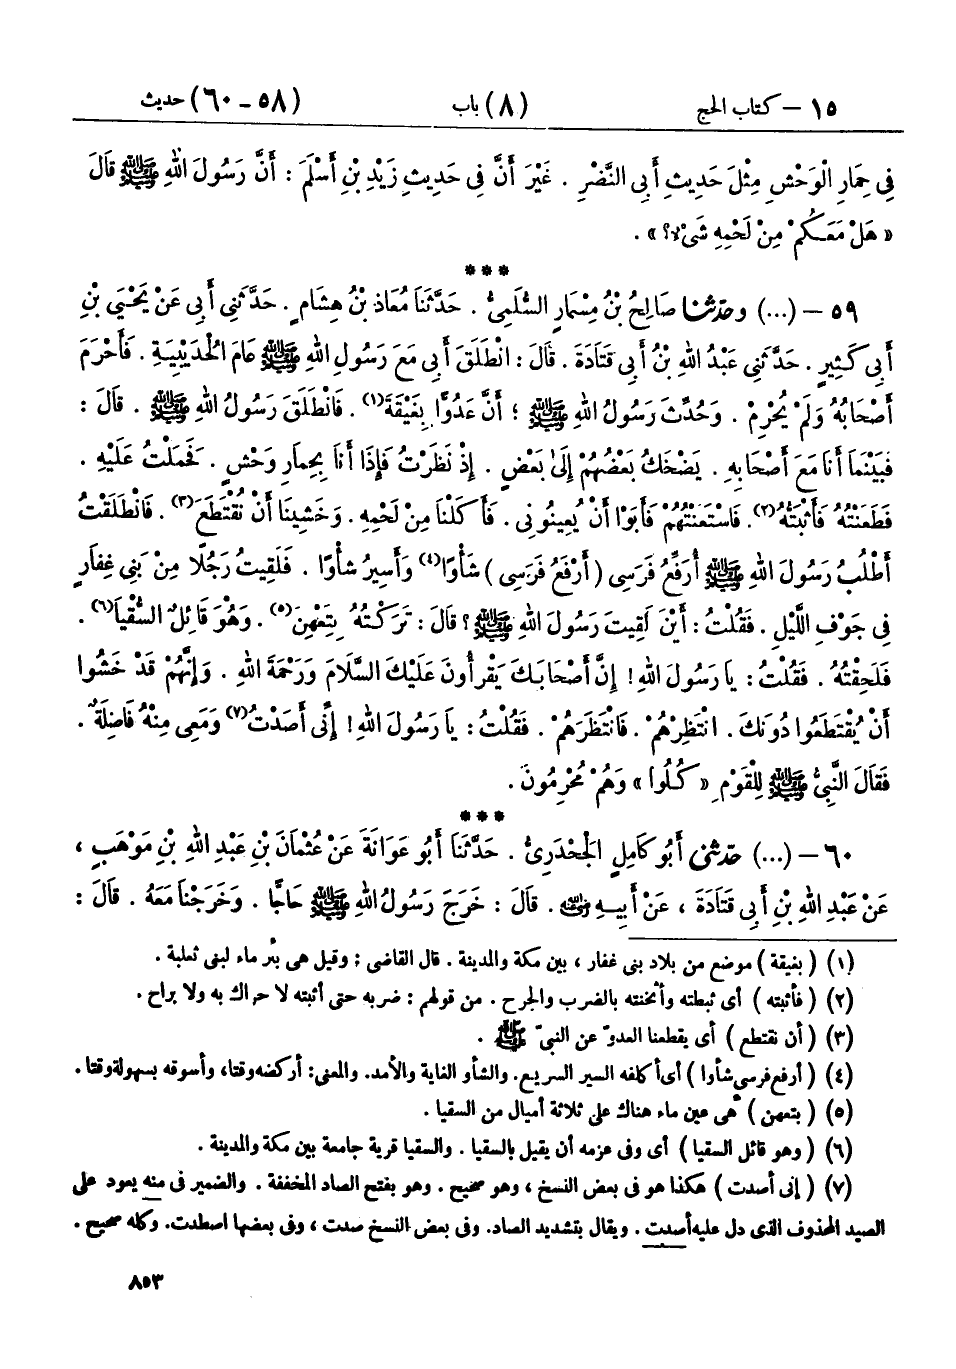 ١٥ – كتاب الحج (٨) باب (٥٨ – ٦٠) حديث
فِي حِمَارِ الْوَحْشِ مِثْلَ حَدِيثِ أَبِي النَّضْرِ . غَيْرَ أَنَّ فِي حَدِيثِ زَيْدِ بْنِ أَسْلَمَ : أَنَّ رَسُولَ اللهِ ﷺ قَالَ
« هَلْ مَعَكُمْ مِنْ لَحْمِهِ شَيْءٌ؟ » .
***
٥٩ – (...) وحدثنا صَالِحُ بْنُ مِسْمَارٍ السُّلَمِيُّ . حَدَّثَنَا مُعَاذُ بْنُ هِشَامٍ . حَدَّثَنِي أَبِي عَنْ يَحْيَى بْنِ
أَبِي كَثِيرٍ . حَدَّثَنِي عَبْدُ اللهِ بْنُ أَبِي قَتَادَةَ . قَالَ : انْطَلَقَ أَبِي مَعَ رَسُولِ اللهِ ﷺ عَامَ الْحُدَيْبِيَةِ . فَأَحْرَمَ
أَصْحَابُهُ وَلَمْ يُحْرِمْ . وَحُدِّثَ رَسُولُ اللهِ ﷺ ؛ أَنَّ عَدُوًّا بِغَيْقَةَ(١) . فَانْطَلَقَ رَسُولُ اللهِ ﷺ . قَالَ :
فَبَيْنَمَا أَنَا مَعَ أَصْحَابِهِ . يَضْحَكُ بَعْضُهُمْ إِلَىٰ بَعْضٍ . إِذْ نَظَرْتُ فَإِذَا أَنَا بِحِمَارِ وَحْشٍ . فَحَمَلْتُ عَلَيْهِ .
فَطَعَنْتُهُ فَأَثْبَتُّهُ(٢). فَاسْتَعَنْتُهُمْ فَأَبَوْا أَنْ يُعِينُونِي . فَأَكَلْنَا مِنْ لَحْمِهِ . وَخَشِينَا أَنْ نُقْتَطَعَ(٣) . فَانْطَلَقْتُ
أَطْلُبُ رَسُولَ اللهِ ﷺ أُرَفِّعُ فَرَسِي ( أَرْفَعُ فَرَسِي ) شَأْوًا(٤) وَأَسِيرُ شَأْوًا . فَلَقِيتُ رَجُلًا مِنْ بَنِي غِفَارٍ
فِي جَوْفِ اللَّيْلِ . فَقُلْتُ : أَيْنَ لَقِيتَ رَسُولَ اللهِ ﷺ ؟ قَالَ : تَرَكْتُهُ بِتِعْهِنَ(٥) . وَهُوَ قَائِلٌ السُّقْيَا(٦) .
فَلَحِقْتُهُ . فَقُلْتُ : يَا رَسُولَ اللهِ ! إِنَّ أَصْحَابَكَ يَقْرَأُونَ عَلَيْكَ السَّلَامَ وَرَحْمَةَ اللهِ . وَإِنَّهُمْ قَدْ خَشُوا
أَنْ يُقْتَطَعُوا دُونَكَ . انْتَظِرْهُمْ . فَانْتَظَرَهُمْ . فَقُلْتُ : يَا رَسُولَ اللهِ ! إِنِّي أَصَدْتُ(٧) وَمَعِي مِنْهُ فَاضِلَةٌ .
فَقَالَ النَّبِيُّ ﷺ لِلْقَوْمِ « كُلُوا » وَهُمْ مُحْرِمُونَ .
***
٦٠ – (...) حدثني أَبُو كَامِلٍ الْجَحْدَرِيُّ . حَدَّثَنَا أَبُو عَوَانَةَ عَنْ عُثْمَانَ بْنِ عَبْدِ اللهِ بْنِ مَوْهَبٍ ،
عَنْ عَبْدِ اللهِ بْنِ أَبِي قَتَادَةَ ، عَنْ أَبِيهِ رضي الله عنه . قَالَ : خَرَجَ رَسُولُ اللهِ ﷺ حَاجًّا . وَخَرَجْنَا مَعَهُ . قَالَ :
(١) ( بغيقة ) موضع من بلاد بنى غفار ، بين مكة والمدينة . قال القاضى : وقيل هى بئر ماء لبنى ثعلبة .
(٢) ( فأثبته ) أى ثبطته وأثخنته بالضرب والجرح . من قولهم : ضربه حتى أثبته لا حراك به ولا براح .
(٣) ( أن نقتطع ) أى يقطعنا العدوّ عن النبىّ ﷺ .
(٤) ( أرفع فرسى شأوا ) أى أكلفه السير السريع. والشأو الغاية والأمد. والمعنى: أركضه وقتا، وأسوقه بسهولة وقتا .
(٥) ( بتعهن ) هى عين ماء هناك على ثلاثة أميال من السقيا .
(٦) ( وهو قائل السقيا ) أى وفى عزمه أن يقيل بالسقيا . والسقيا قرية جامعة بين مكة والمدينة .
(٧) ( إنى أصدت ) هكذا هو فى بعض النسخ ، وهو صحيح . وهو بفتح الصاد المخففة . والضمير فى منه يعود على
الصيد المحذوف الذى دل عليه أصدت . ويقال بتشديد الصاد. وفى بعض النسخ صدت ، وفى بعضها اصطدت. وكله صحيح .
٨٥٣